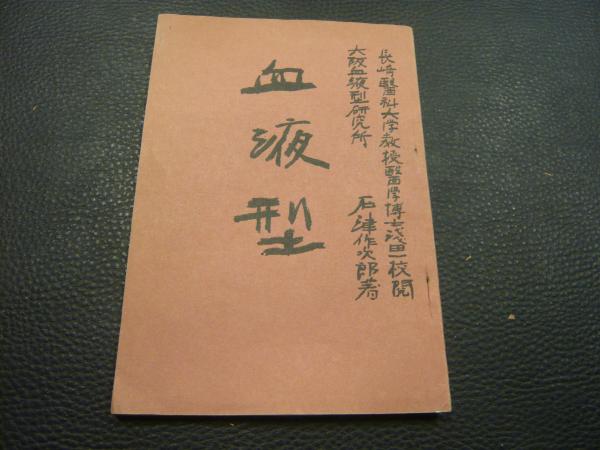 長崎醫科大学教授醫学博士浅田一校閲
大阪血液型研究所
石津作次郎著
血液型